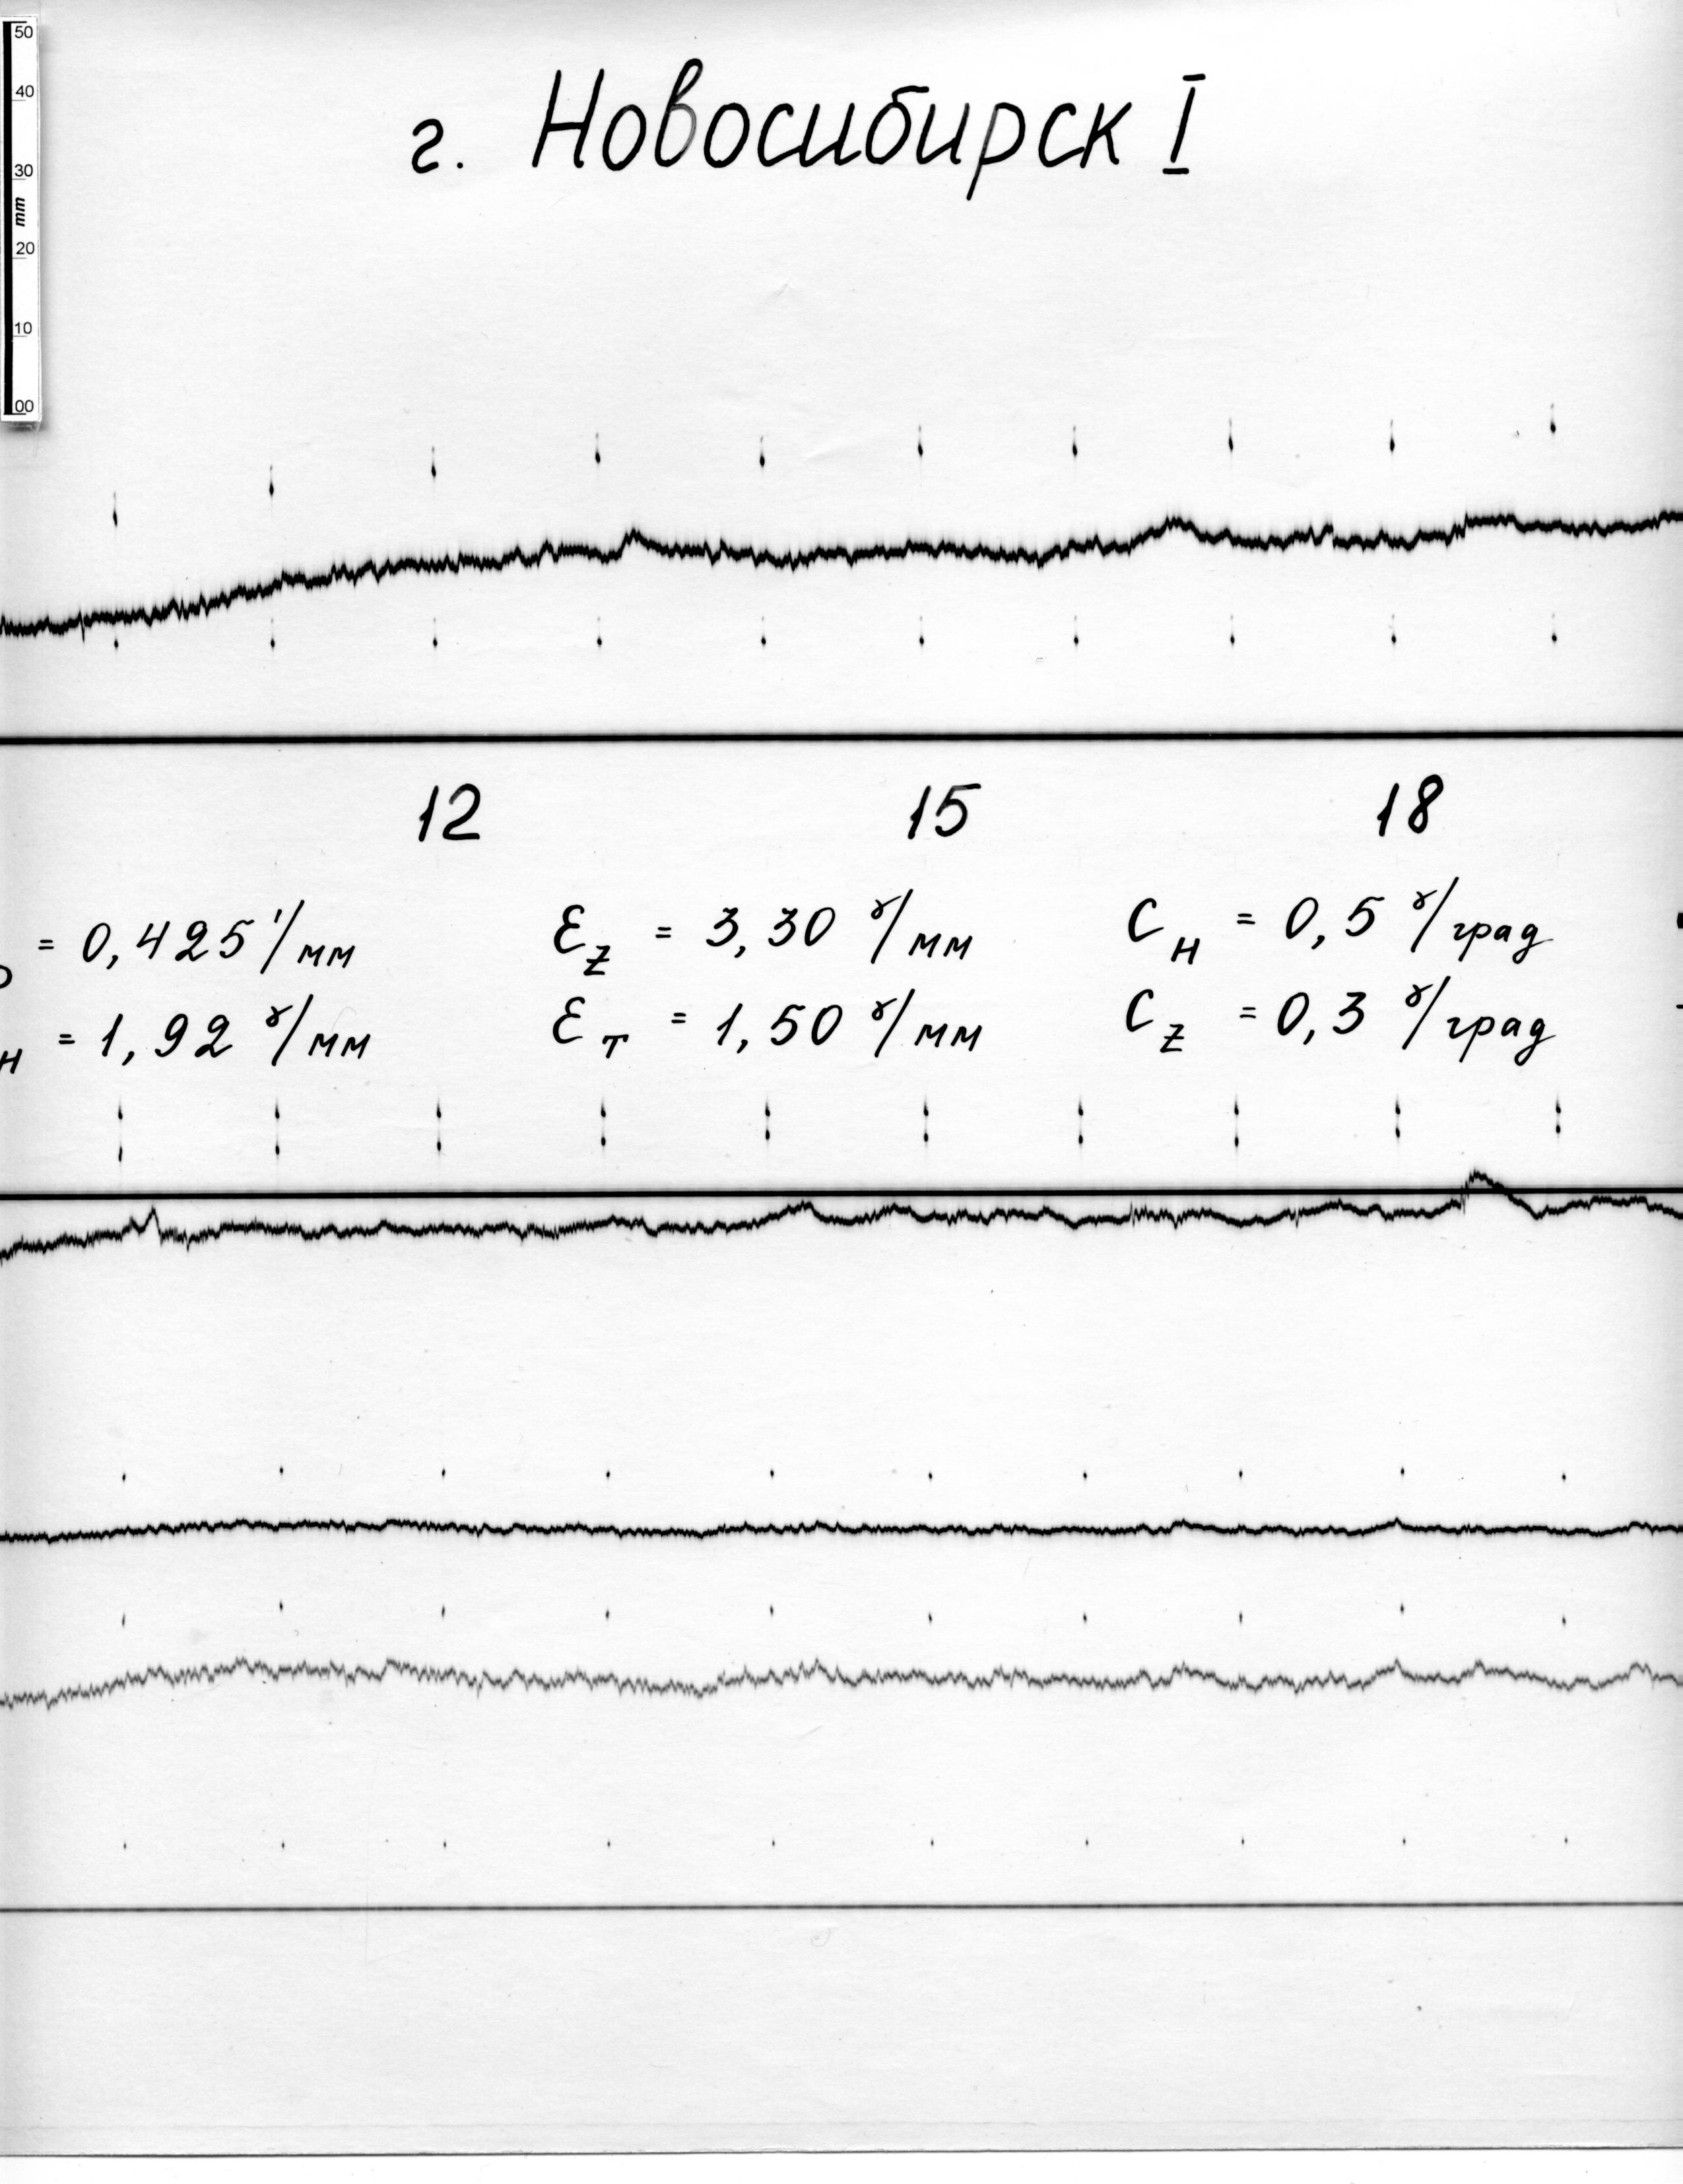 50
40
30
mm
20
10
00
г. Новосибирск I
12 15 18
= 0,425'/мм ε_z = 3,30 γ/мм C_H = 0,5 γ/град
H = 1,92 γ/мм ε_T = 1,50 γ/мм C_z = 0,3 γ/град